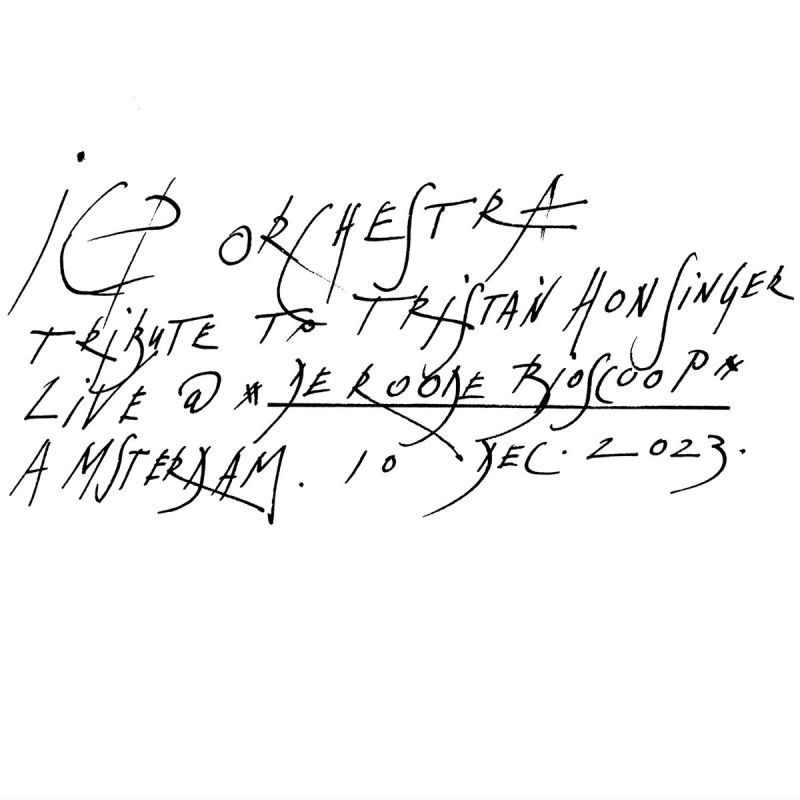 iCP ORCHESTRA
TRiBUTE TO TRiSTAN HONSiNGER
LiVE @ *DE ROODE BiOSCOOP*
AMSTERDAM. 10 DEC. 2023.